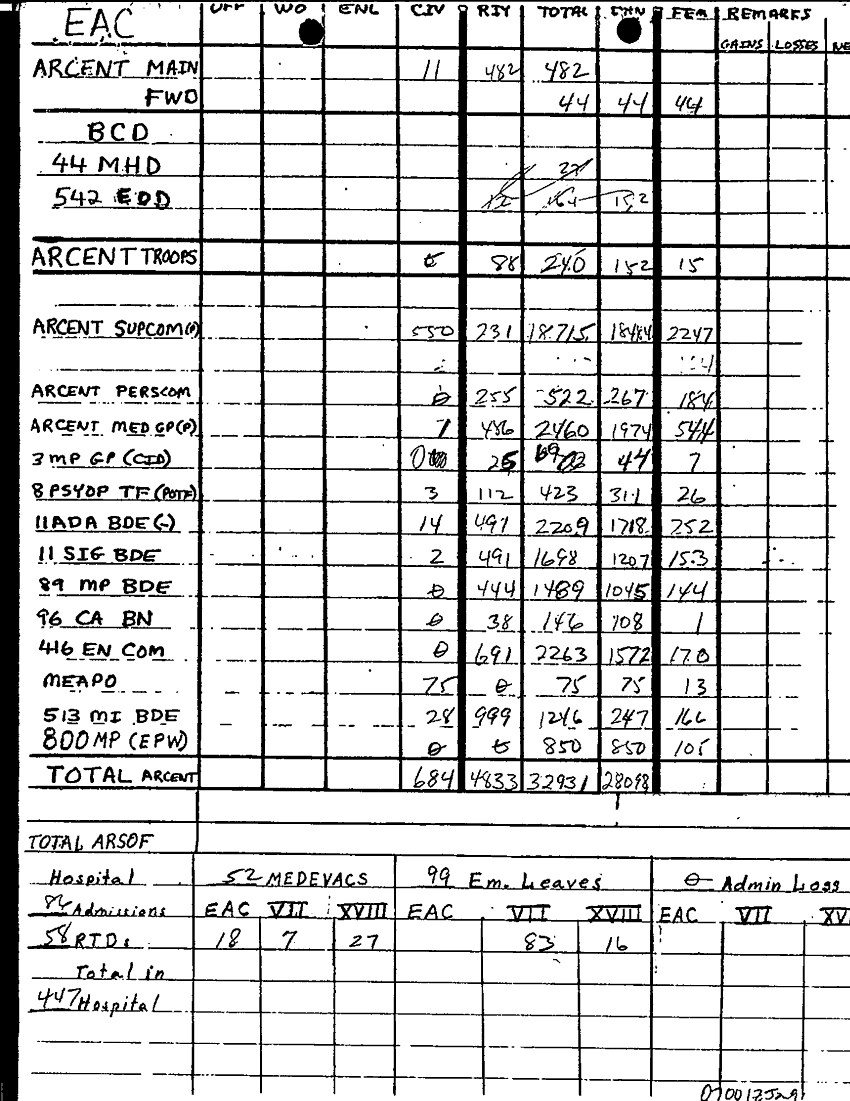 EAC OFF WO ENL CIV RIY TOTAL FEM REMARKS
GAINS LOSSES NE
ARCENT MAIN 11 482 482
FWD 44 44 44
BCD
44 MHD 27
542 EOD 152
ARCENT TROOPS 88 240 152 15
ARCENT SUPCOM(P) 550 231 18715 18484 2247
ARCENT PERSCOM 0 255 522 267 184
ARCENT MED GP(P) 7 486 2460 1974 544
3 MP GP (CID) 0 25 69 44 7
8 PSYOP TF (POTF) 3 112 423 311 26
11 ADA BDE (-) 14 491 2209 1718 252
11 SIG BDE 2 491 1698 1207 153
89 MP BDE 0 444 1489 1045 144
96 CA BN 0 38 146 108 1
416 EN COM 0 691 2263 1572 170
MEAPO 75 0 75 75 13
513 MI BDE 28 999 1246 247 166
800 MP (EPW) 0 0 850 850 105
TOTAL ARCENT 684 4833 32931 28098
TOTAL ARSOF
Hospital 52 MEDEVACS 99 Em. Leaves 0 Admin Loss
Admissions EAC VII XVIII EAC VII XVIII EAC VII XV
58 RTDs 18 7 27 83 16
Total in
447 Hospital